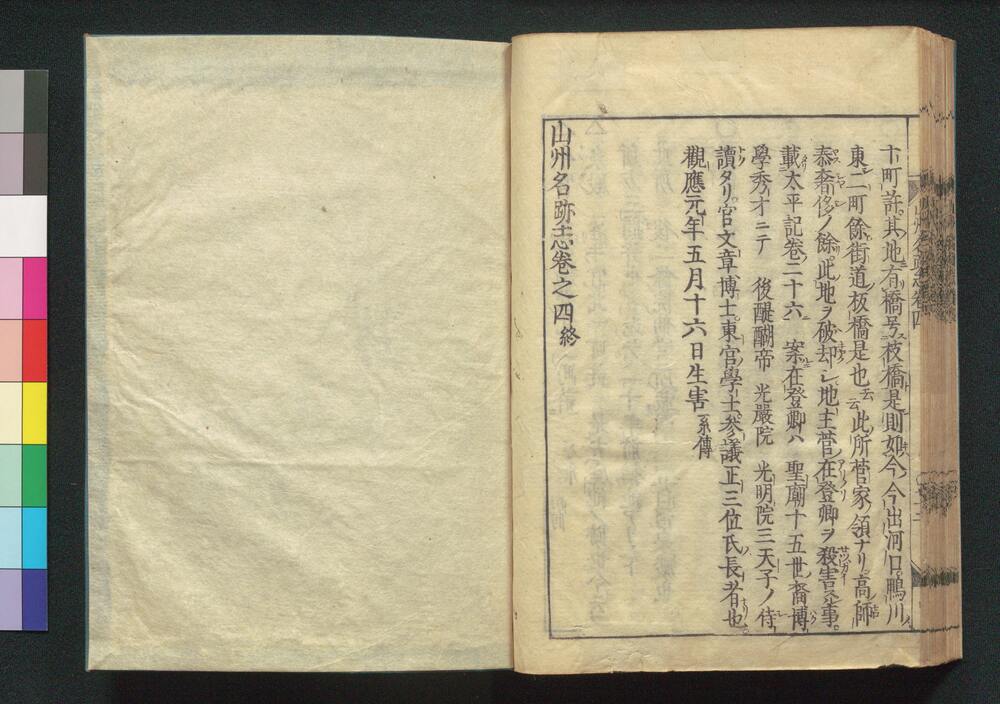 卞町許其地有橋号枝橋是則如今今出河口鴨川
東二町餘街道板橋是也云云此所菅家領ナリ高師
泰奢侈ノ餘此地ヲ破却シ地主菅在登卿ヲ殺害ス事
載太平記卷二十六 案在登卿ハ 聖廟十五世裔博
學秀才ニテ 後醍醐帝 光嚴院 光明院三天子ノ侍
讀タリ官文章博士東宮學士參議正三位氏長者也
觀應元年五月十六日生害系傳
山州名跡志卷之四終